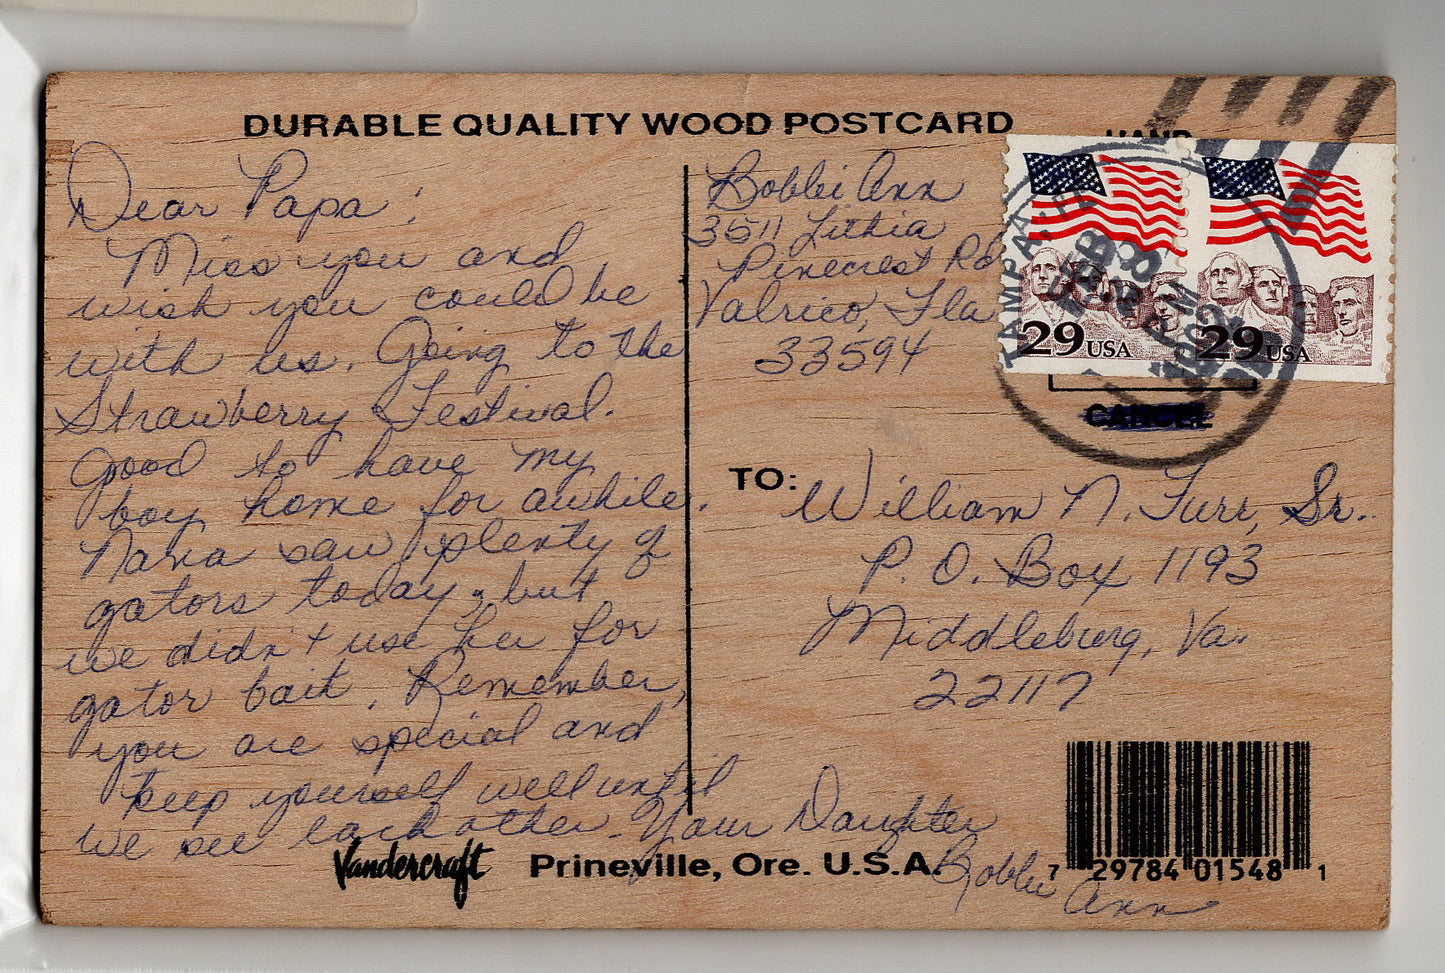 DURABLE QUALITY WOOD POSTCARD
HAND
Dear Papa:
Miss you and
wish you could be
with us. Going to the
Strawberry Festival.
Good to have my
boy home for awhile.
Nana saw plenty of
gators today, but
we didn't use her for
gator bait. Remember,
you are special and
keep yourself well until
we see each other - Your Daughter
Bobbi Ann
Bobbi Ann
3511 Lithia
Pinecrest Rd
Valrico, Fla
33594
TAMPA, FL
FEB 8
PM
1992
29 USA
29 USA
CANCEL
TO: William N. Furr, Sr.
P. O. Box 1193
Middleburg, Va.
22117
Vandercraft Prineville, Ore. U.S.A.
7 29784 01548 1